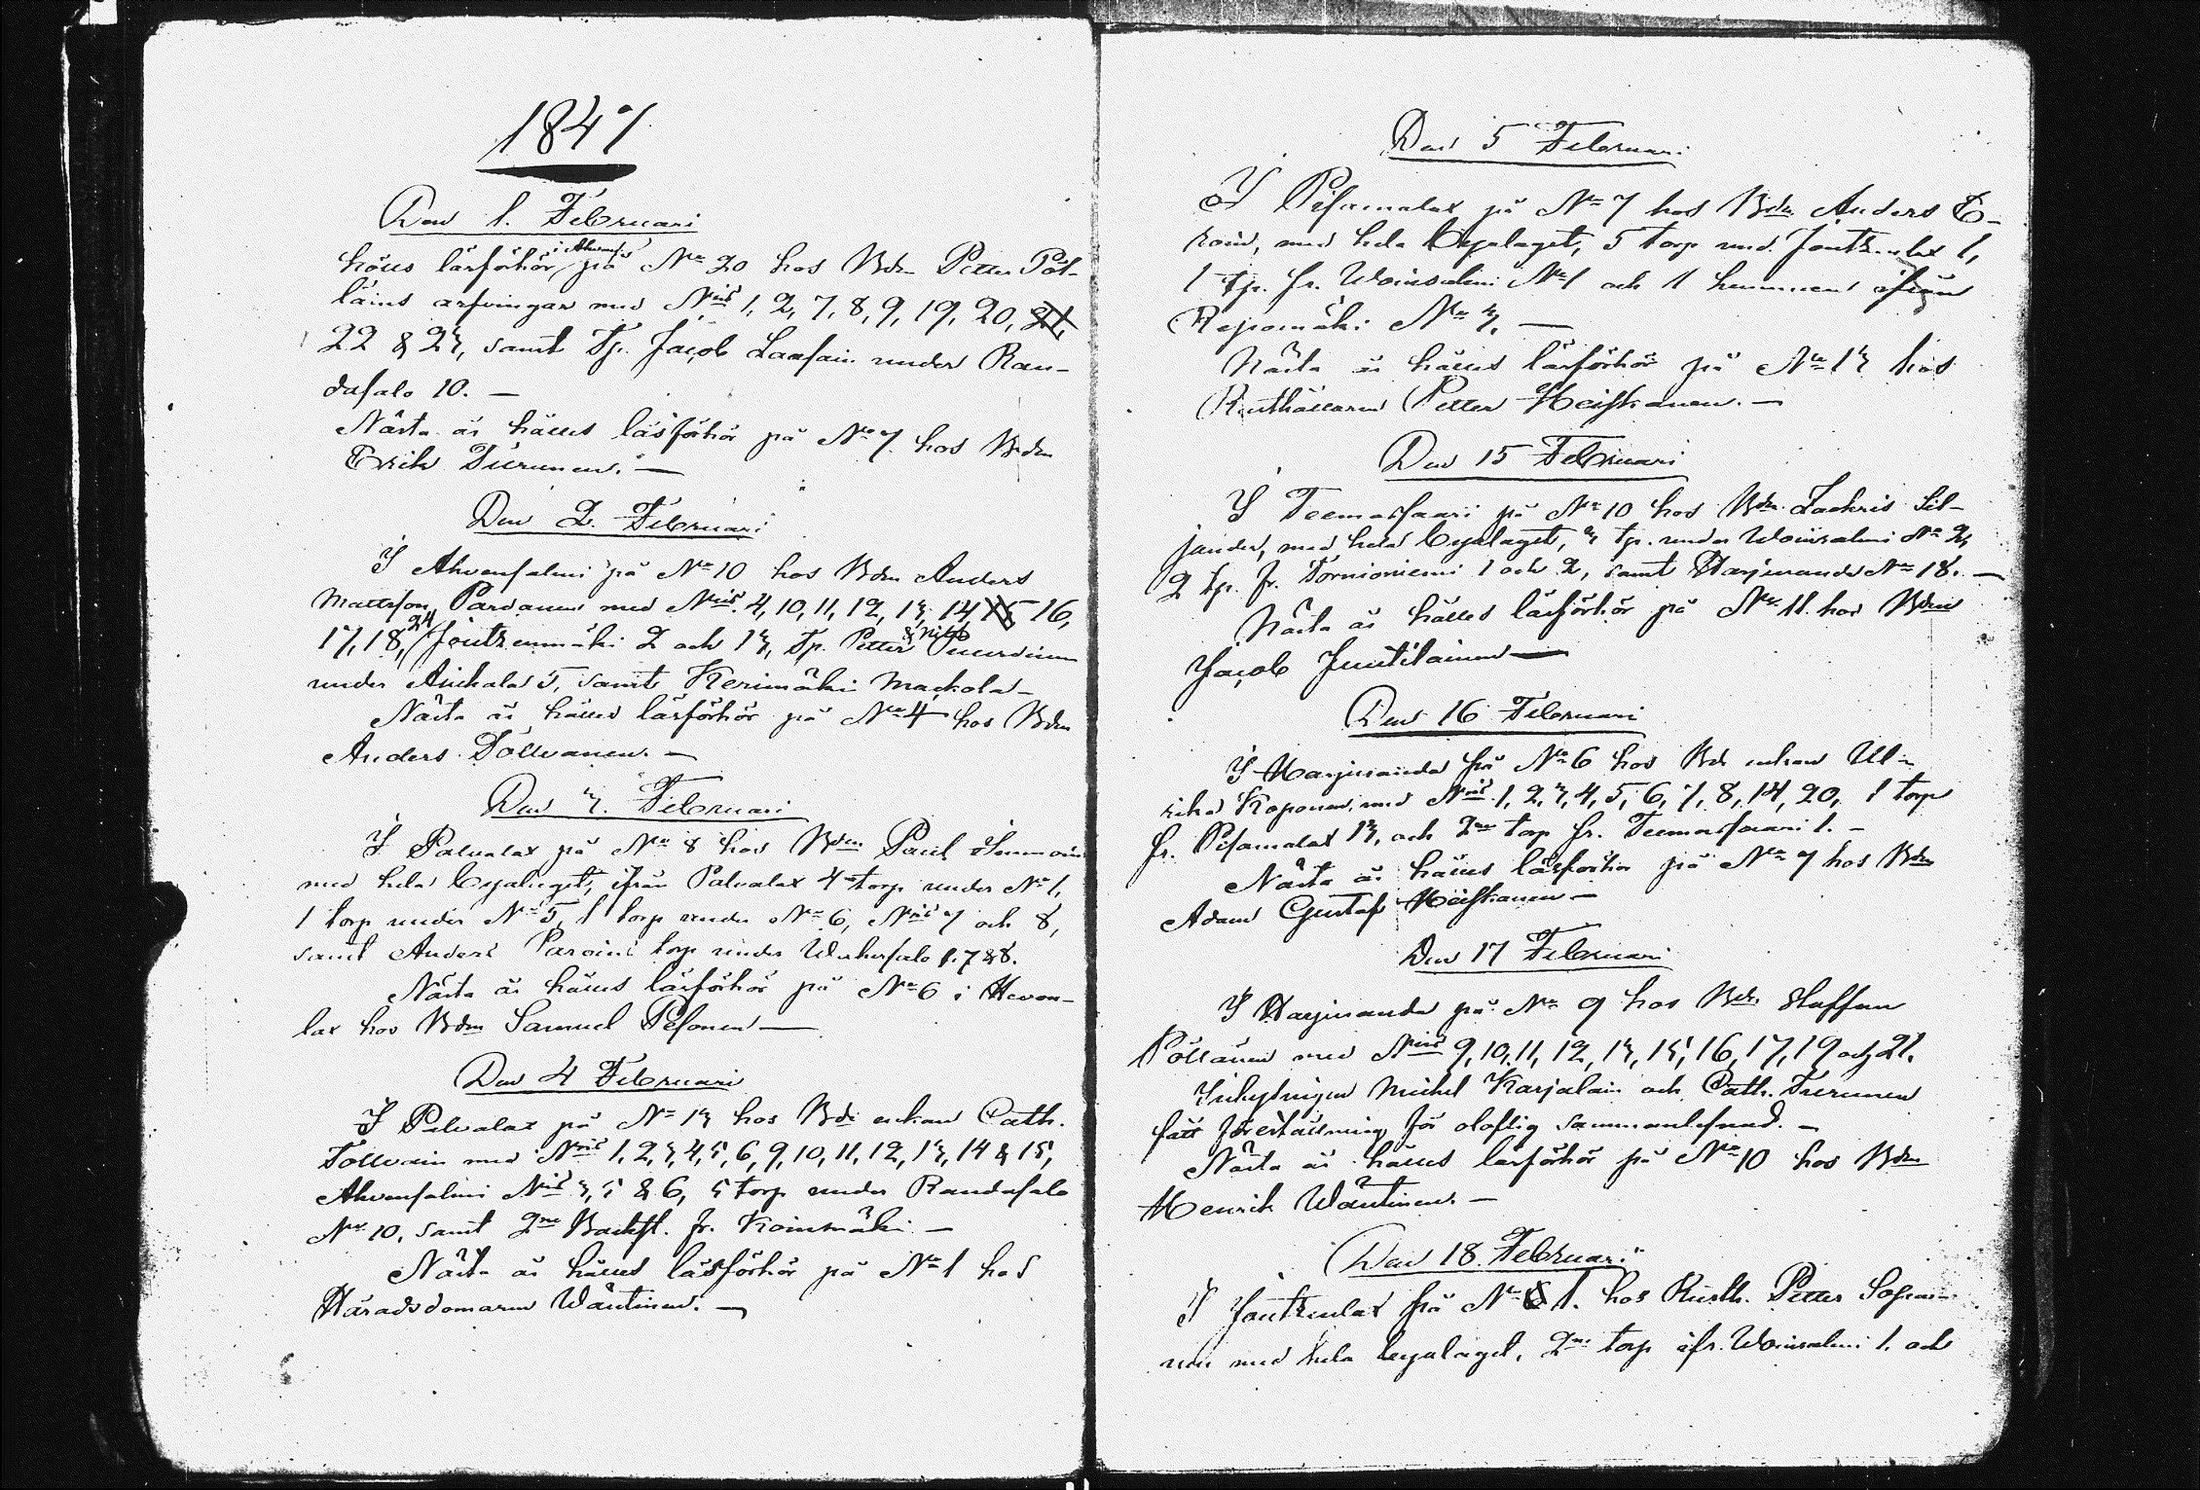 1847
Den 1. Februari
hölls läsförhör i Ahvens. på No 20 hos Bdn Petter Pöl-
läins arfvingar med Nris 1, 2, 7, 8, 9, 19, 20, 21,
22 & 23, samt Tp. Jacob Laasain under Ran-
dasalo 10. —
Nästa år hålles läsförhör på No 7 hos Bdn
Erik Turunen. —
Den 2. Februari
I Ahvensalmi på No 10 hos Bdn Anders
Mattsson Pardanen med Nris 4, 10, 11, 12, 13, 14, 15 16,
17, 18, 24 Jouhenmäki 2 och 13, Tp. Petter & Nils
under 5, samt Kerimäki Mackola —
Nästa år hålles läsförhör på No 4 hos Bdn
Anders Tollvanen. —
Den 3. Februari
I Palvalax på No 8 hos Bdn Paul
med hela byalaget, ifrån Palvalax 4 torp under No 1,
1 torp under No 5, 1 torp under No 6, Nris 7 och 8,
samt Anders torp under 1. 7 & 8.
Nästa år hålles läsförhör på No 6 i Hevon-
lax hos Bdn Samuel Pesonen —
Den 4 Februari
I Palvalax på No 13 hos Bde enkan Cath.
Tollvain med Nris 1, 2, 3, 4, 5, 6, 9, 10, 11, 12, 13, 14 & 15,
Ahvensalmi Nris 3, 5 & 6, 5 torp under Randasalo
No 10, samt 2ne Backst. fr. Koinmäki —
Nästa år hålles läsförhör på No 1 hos
Häradsdomaren Wäntinen. —
Den 5 Februari
I Pisamalax på No 7 hos Bdn Anders E-
roin, med hela byalaget, 5 torp und. Joutzenlax 1,
1 tp. fr. Woinsalmi No 1 och 1 hemman ifrån
Repomäki No 3. —
Nästa år hålles läsförhör på No 13 hos
Rusthållaren Petter Heiskanen. —
Den 15 Februari
I Teemassaari på No 10 hos Bdn Zachris Sil-
jander, med hela byalaget, 3 tp. under Woinsalmi No 2,
2 tp. fr. Tornioniemi 1 och 2, samt Harjuranda No 18. —
Nästa år hålles läsförhör på No 11 hos Bdn
Jacob Juutilainen —
Den 16 Februari
I Harjuranda på No 6 hos Bde enkan Ul-
rika Koponen, med Nris 1, 2, 3, 4, 5, 6, 7, 8, 14, 20, 1 torp
fr. Pisamalax 13, och 2ne torp fr. Teemassaari 1. —
Nästa år hålles läsförhör på No 7 hos Bdn
Adam Gustaf Heiskanen —
Den 17 Februari
I Harjuranda på No 9 hos Bdn Staffan
Pöllänen med Nris 9, 10, 11, 12, 13, 15, 16, 17, 19 och 21.
Inhysningen Michel Karjalain och Cath. Turunen
fått föreställning för oloflig sammanlefnad. —
Nästa år hålles läsförhör på No 10 hos Bdn
Henrik Wäntinen. —
Den 18. Februari
I Joutzenlax på No 1. hos Rusth. Petter
nen med hela byalaget, 2ne torp ifr. Woinsalmi 1. och